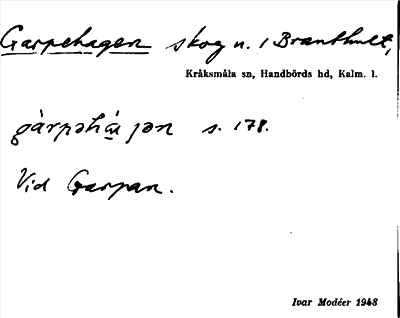 Garpehagen skog n. i Branthult,
Kråksmåla sn, Handbörds hd, Kalm. l.
s. 178.
Vid Garpan.
Ivar Modéer 1943